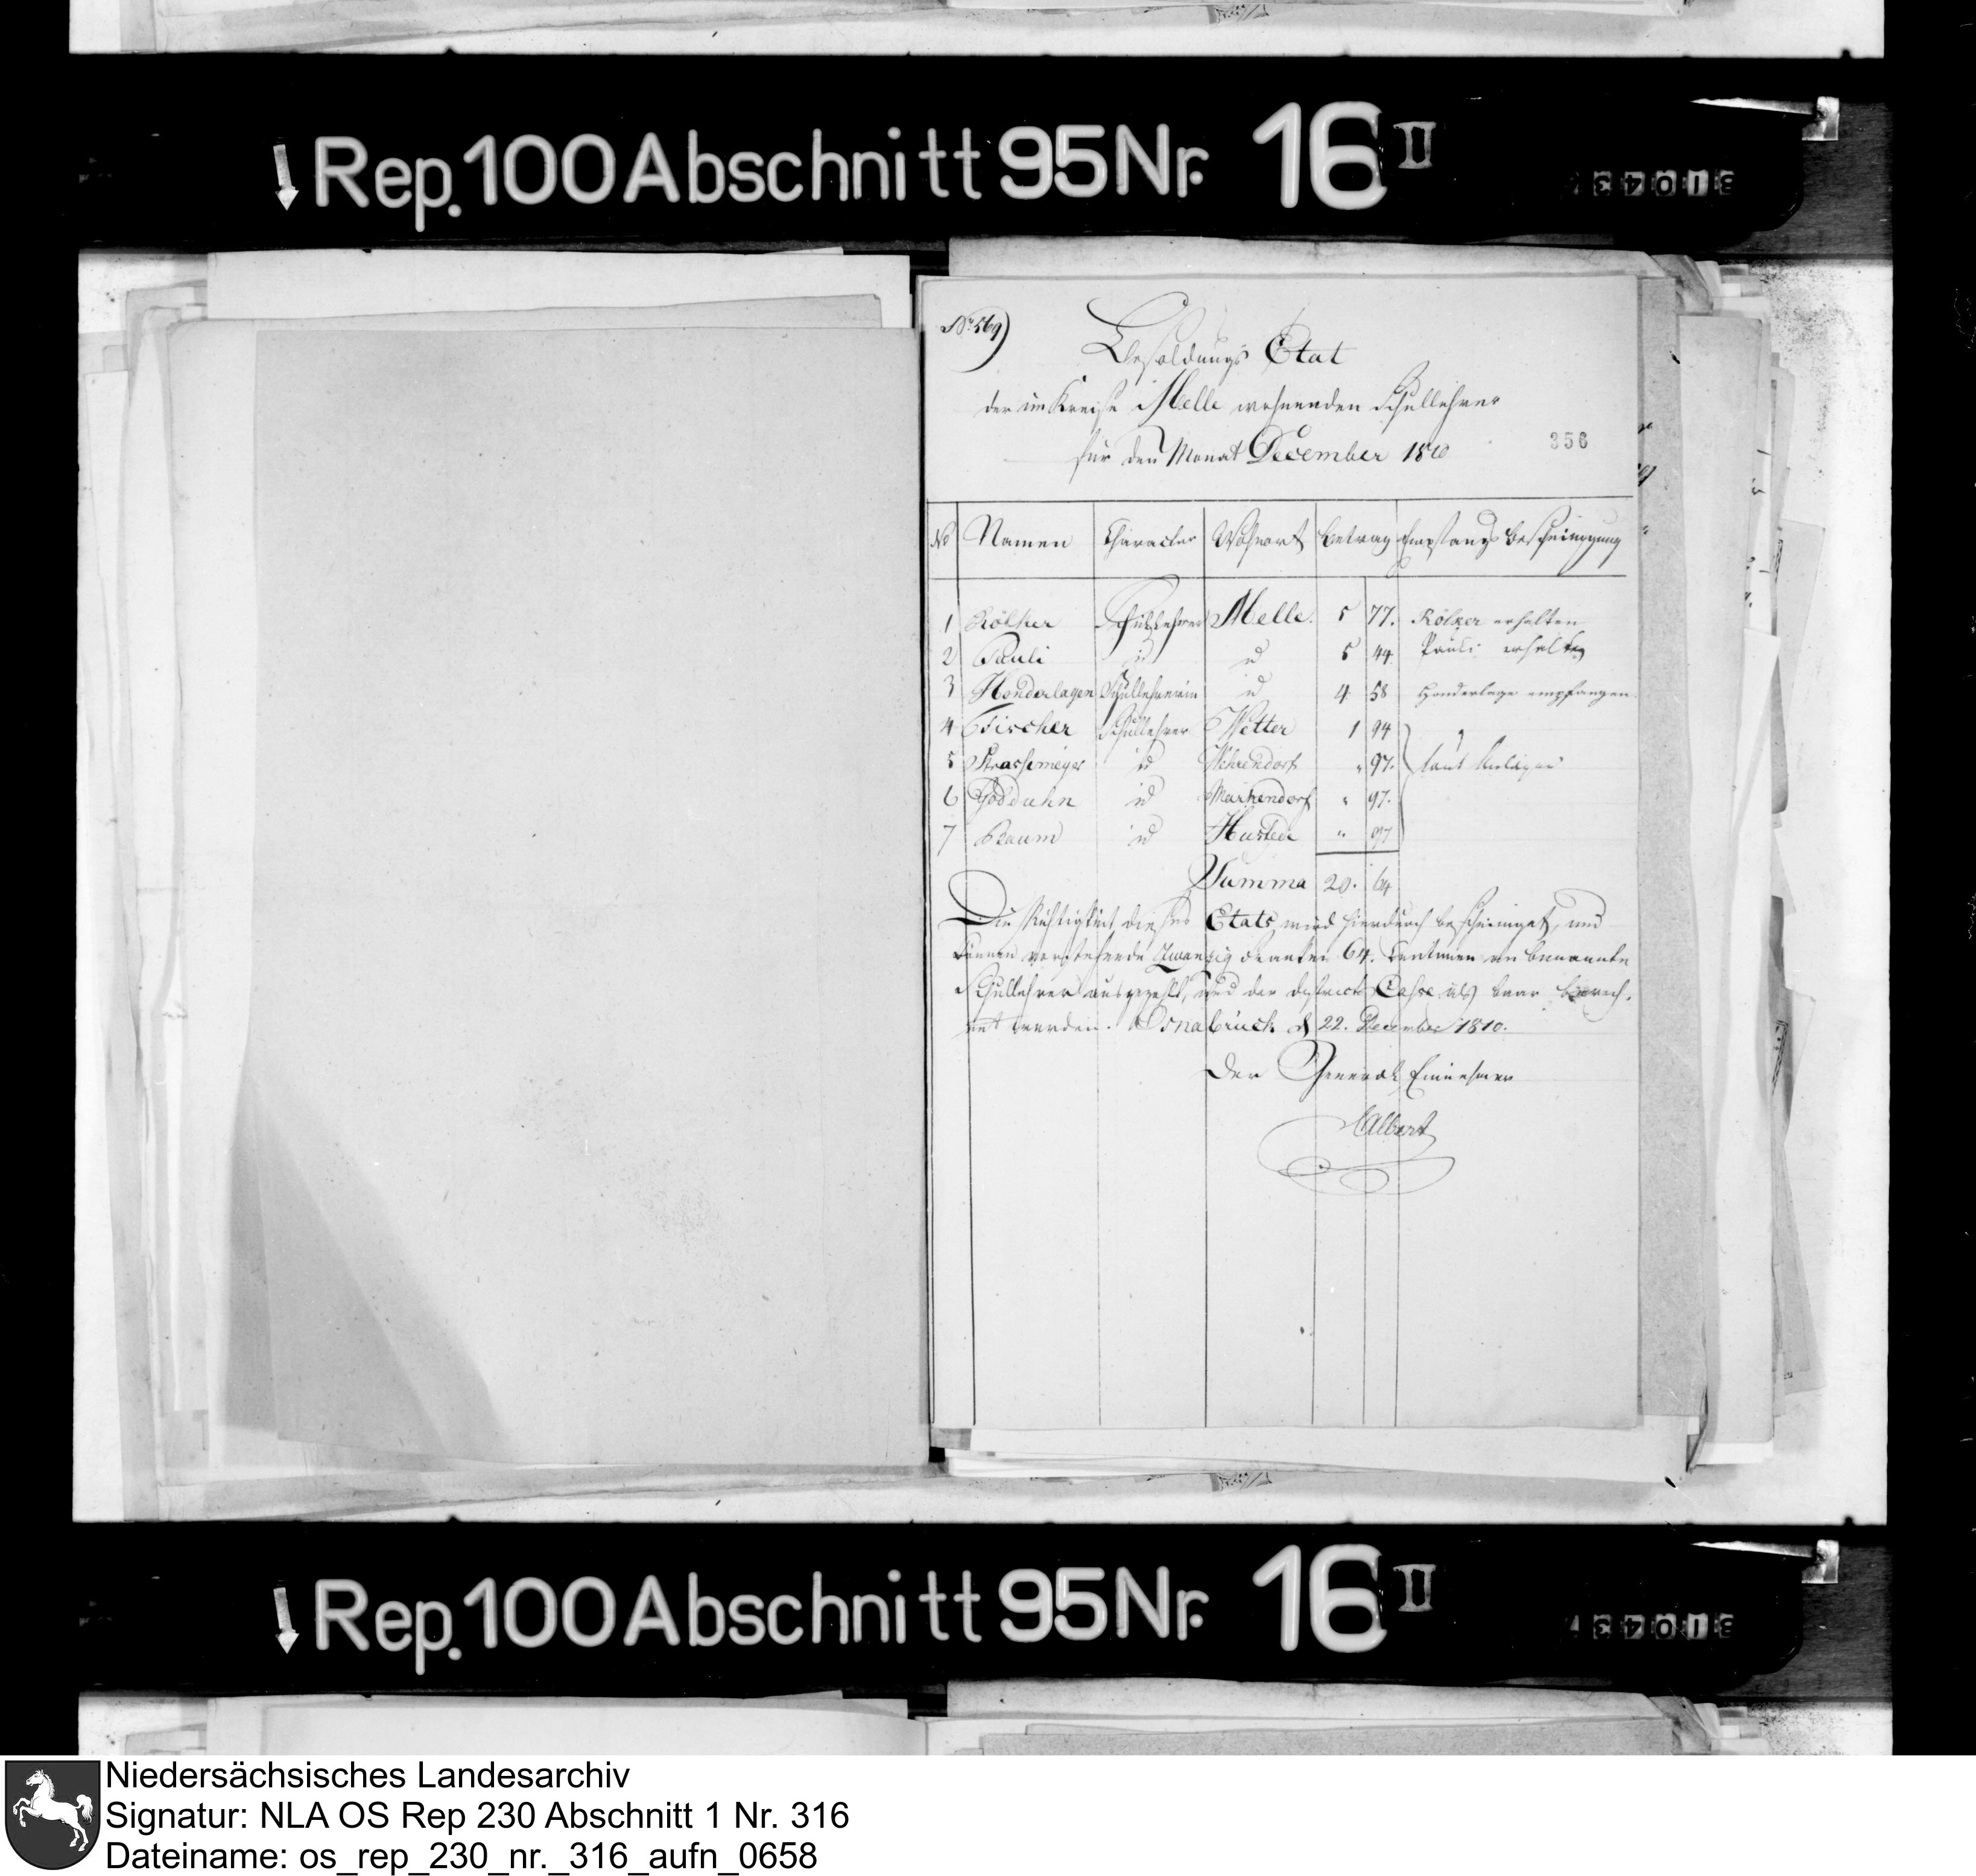 ↓ Rep. 100 Abschnitt 95 Nr. 16 II
No. 569)
Besoldungs Etat
der im Kreise Melle wohnenden Schullehrer
für den Monat December 1810
356
No Namen Character Wohnort Betrag Empfangs Bescheinigung
1 Rölker Schullehrer Melle. 5 77. Rölker erhalten
2 Pauli id id 5 44. Pauli erhalten
3 Honderlagen Schullehrerin id 4 58 Honderlage empfangen.
4 Fischer Schullehrer Wetter 1 94
5 Strassemeyer id Wehrendorf " 97. laut Anlagen
6 id Markendorf " 97.
7 Baum id Hustede " 97
Summa 20. 64
Die Richtigkeit dieses Etats wird hierdurch bescheiniget, und
können vorstehende Zwanzig Franken 64. Centimen an benannte
Schullehrer ausgezahlt, und der Districts Casse als baar berech-
net werden. Osnabrück d 22. December 1810.
Der General Einnehmer
Albert
↓ Rep. 100 Abschnitt 95 Nr. 16 II
Niedersächsisches Landesarchiv
Signatur: NLA OS Rep 230 Abschnitt 1 Nr. 316
Dateiname: os_rep_230_nr._316_aufn_0658